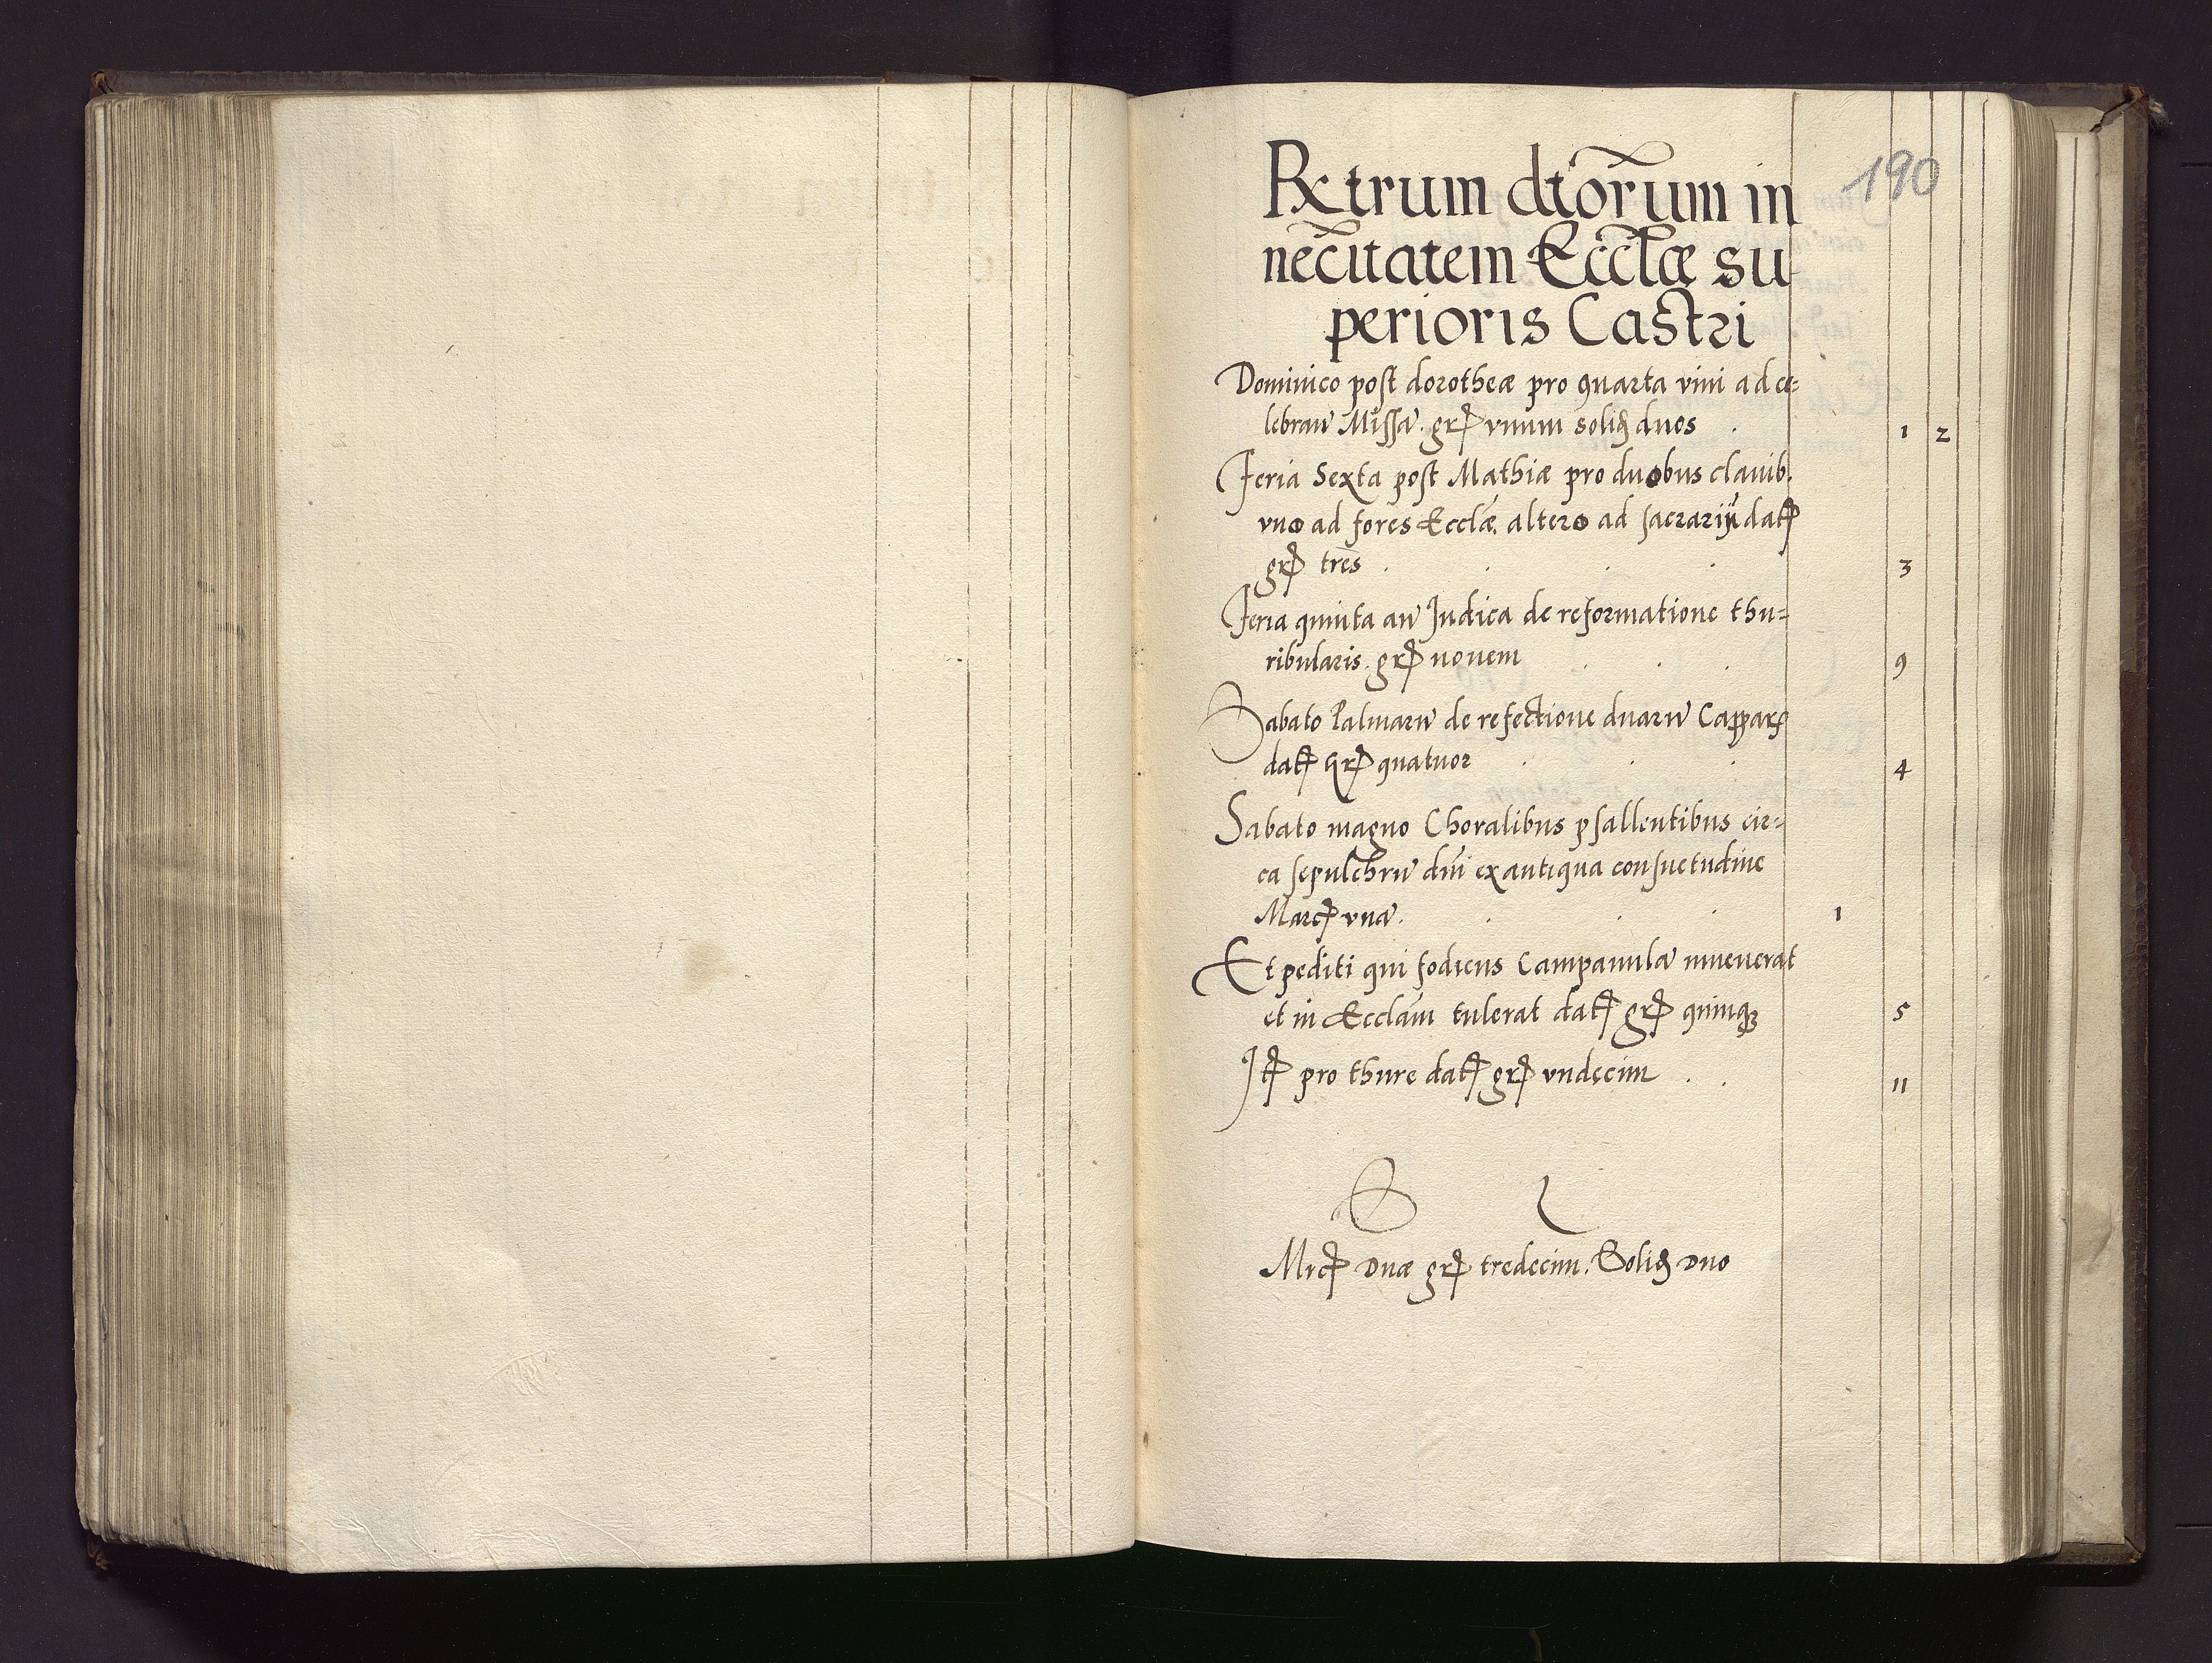 190
Rx trum dtorum in
necitatem Ecclæ su
perioris Castri
Dominico post dorotheæ pro quarta vini ad ce-
lebran Missa. gr vnum solid duos . 1 2
Feria Sexta post Mathiæ pro duobus clauib.
vno ad fores Ecclæ altero ad sacrariu dat
gr tres . . . . 3
Feria quinta an Judica de reformatione thu-
ribularis. gr nouem . . . 9
Sabato Palmaru de refectione duaru Cappar
dat gr quatuor . . . 4
Sabato magno Choralibus psallentibus cir-
ca sepulchru dni ex antiqua consuetudine
Marc vna. . . . 1
Et pediti qui fodiens Campanula inuenerat
et in Ecclam tulerat dat gr quinq 5
It pro thure dat gr vndecim . . 11
S l
Mrc duæ gr tredecim. Solid duo